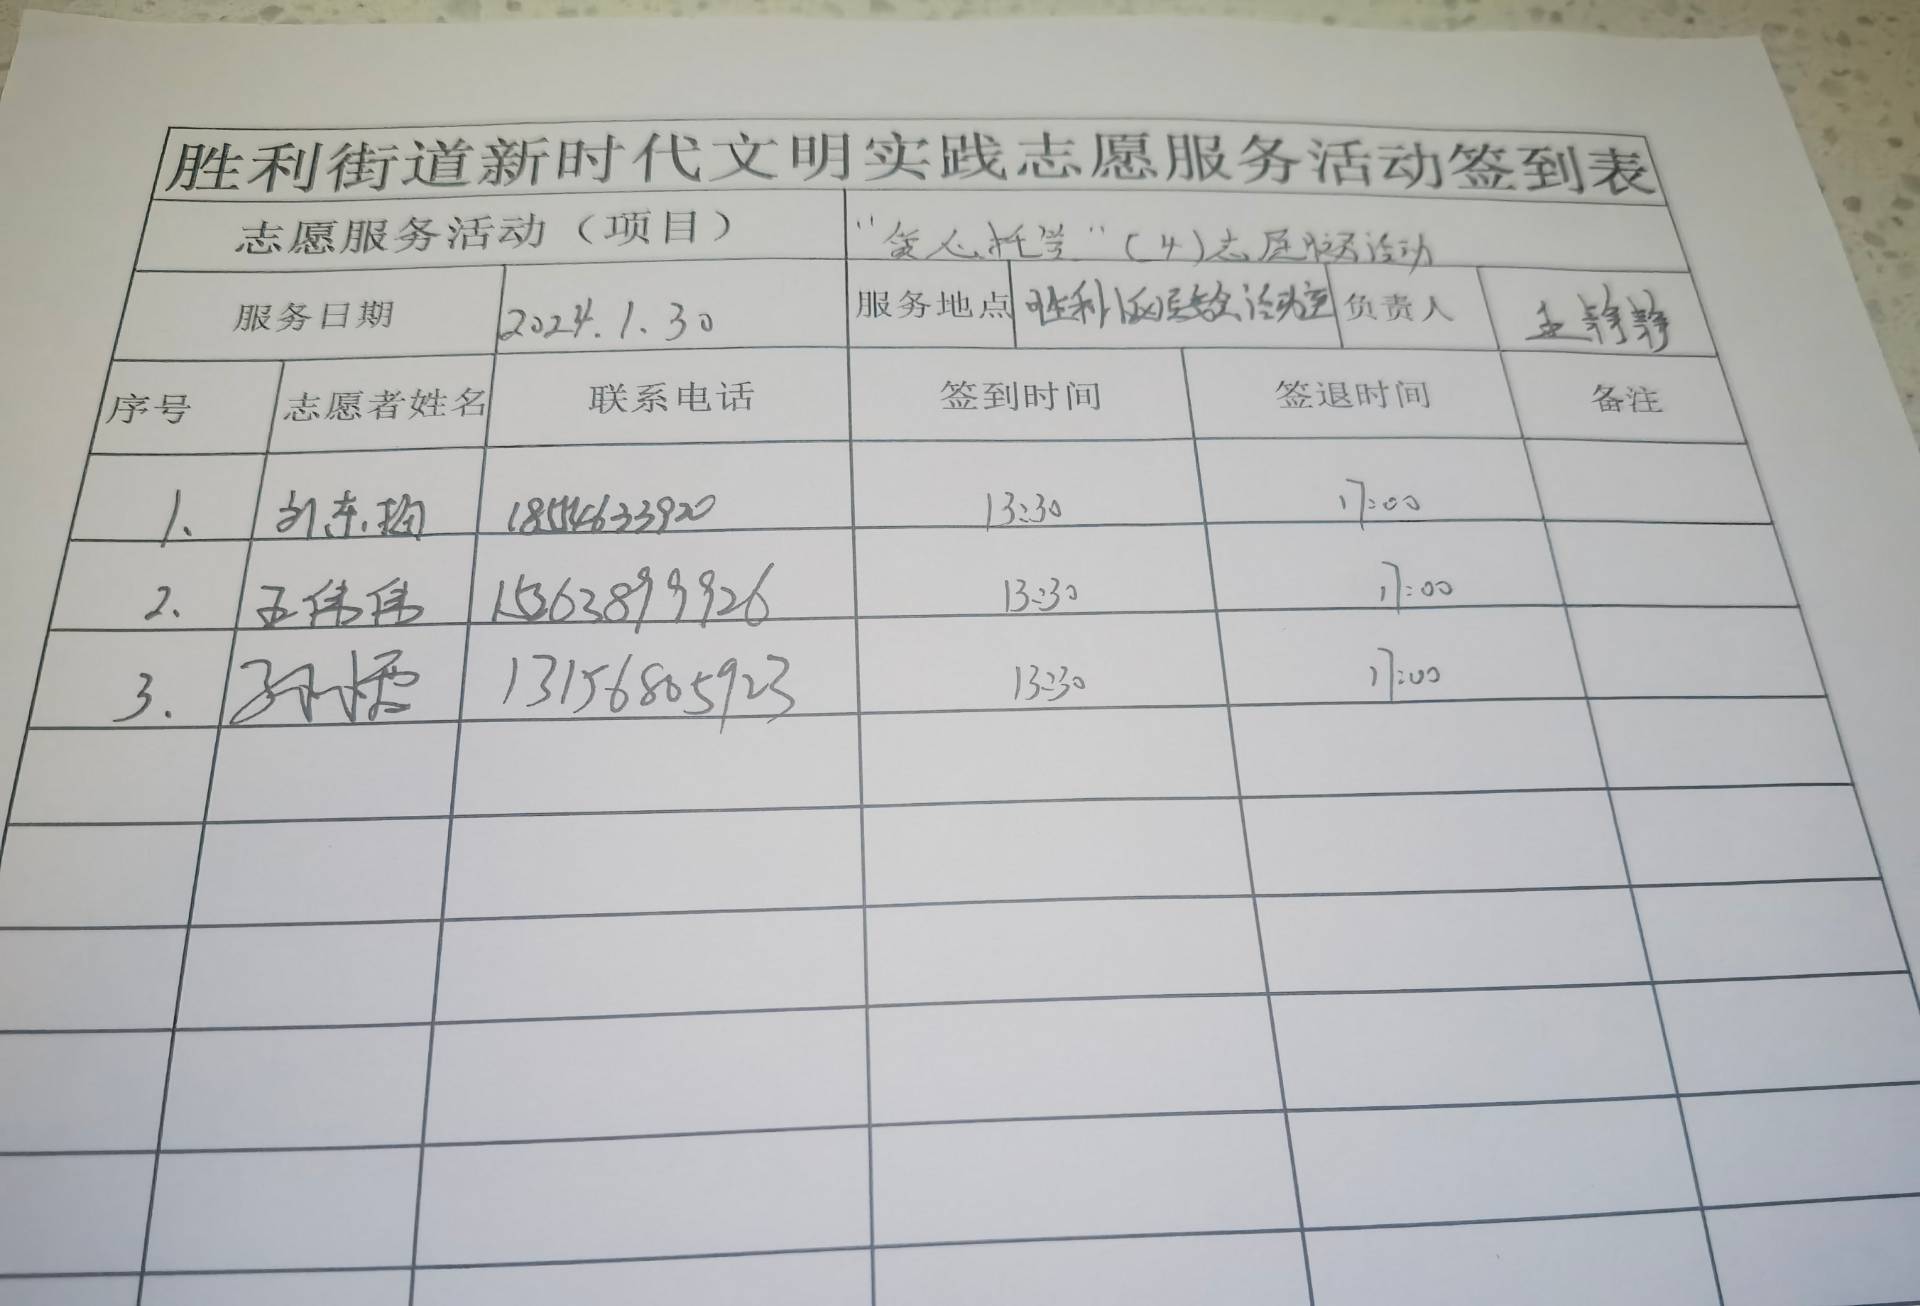 胜利街道新时代文明实践志愿服务活动签到表
志愿服务活动（项目） "爱心托管"（4）志愿服务活动
服务日期 2024.1.30 服务地点 胜利 活动室 负责人 王静静
序号 志愿者姓名 联系电话 签到时间 签退时间 备注
1. 刘东 13:30 17:00
2. 王伟伟 15263899926 13:30 17:00
3. 孙 13156805923 13:30 17:00